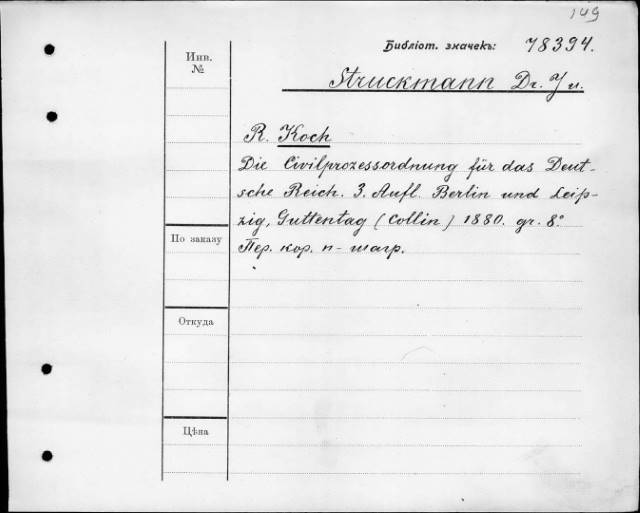 149
Библіот. значекъ: 78394.
Инв. №
Struckmann Dr. J u.
R. Koch
Die Civilprozessordnung für das Deut-
sche Reich. 3. Aufl. Berlin und Leip-
zig, Guttentag (Collin) 1880. gr. 8º
Пер. кор. п-шагр.
По заказу
Откуда
Цѣна